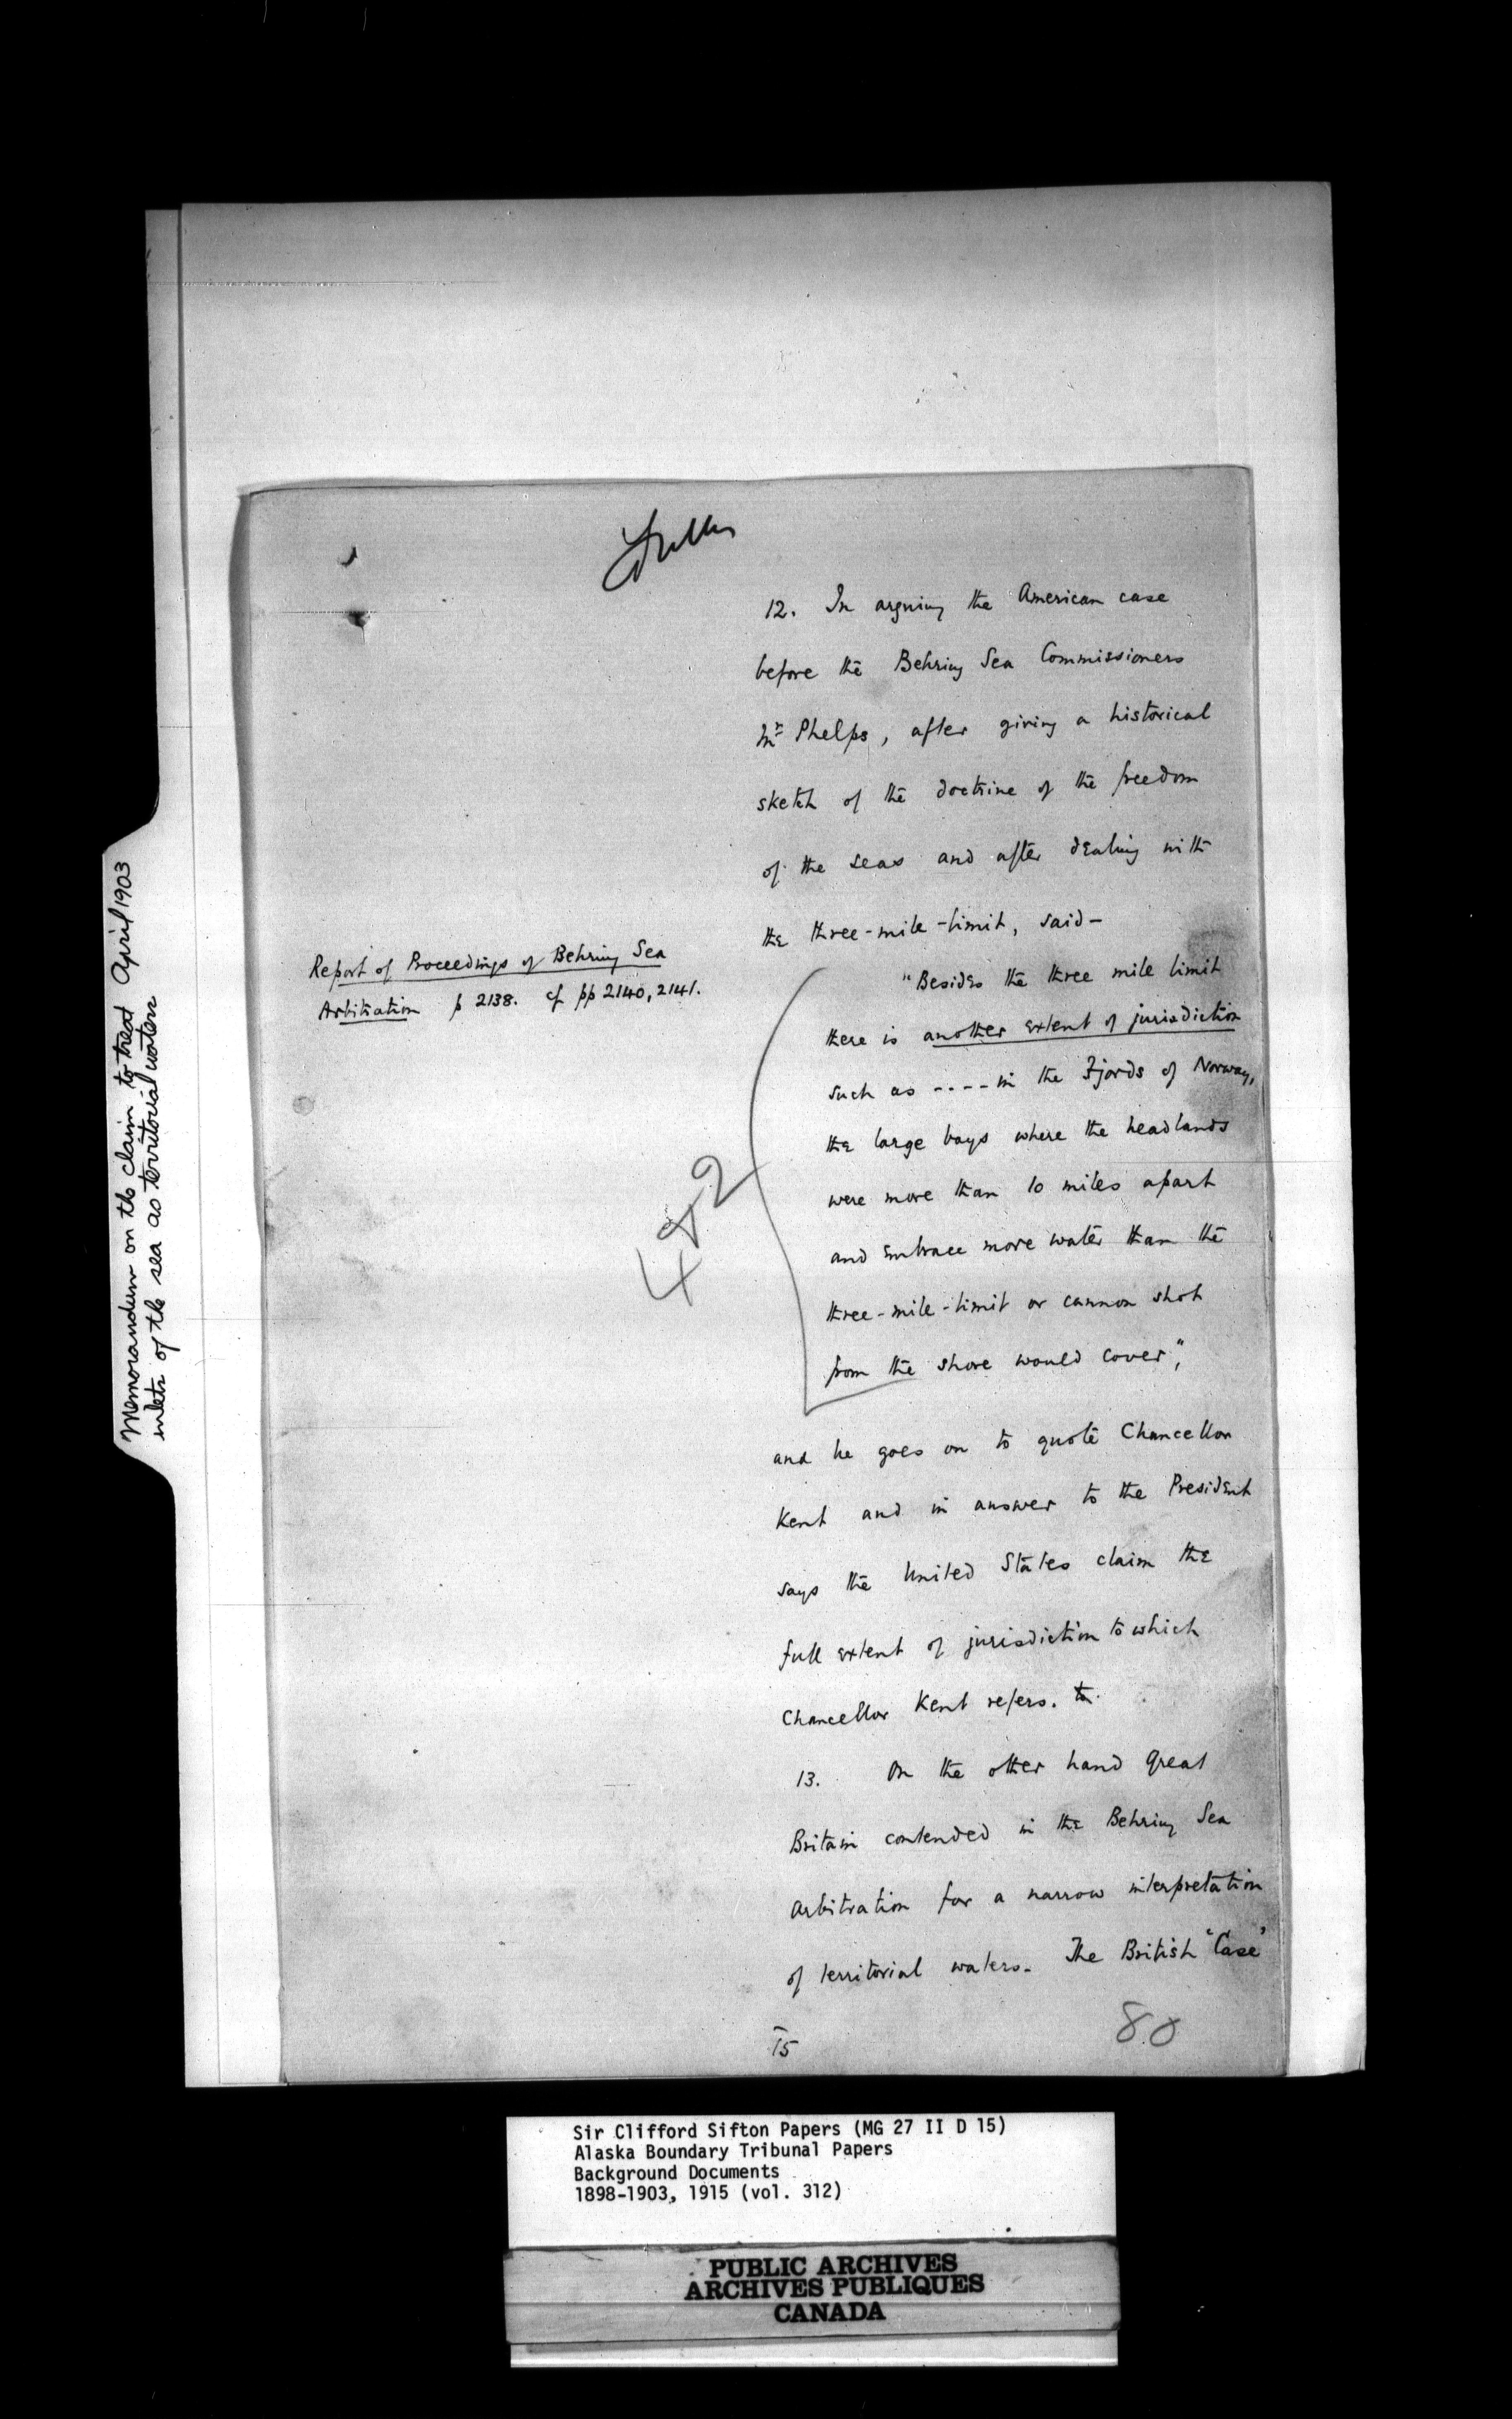 Memorandum on the claim to treat April 1903
inlets of the sea as territorial waters
12. In arguing the American case
before the Behring Sea Commissioners
Mr Phelps, after giving a historical
sketch of the doctrine of the freedom
of the seas and after dealing with
the three-mile-limit, said—
Report of Proceedings of Behring Sea
Arbitration p 2138. cf pp 2140, 2141.
"Besides the three mile limit
there is another extent of jurisdiction
such as ---- in the Fjords of Norway,
the large bays where the headlands
were more than 10 miles apart
and embrace more water than the
three-mile-limit or cannon shot
from the shore would cover",
482
and he goes on to quote Chancellor
Kent and in answer to the President
says the United States claim the
full extent of jurisdiction to which
Chancellor Kent refers. to.
13. On the other hand Great
Britain contended in the Behring Sea
Arbitration for a narrow interpretation
of territorial waters. The British 'Case'
15
80
Sir Clifford Sifton Papers (MG 27 II D 15)
Alaska Boundary Tribunal Papers
Background Documents
1898-1903, 1915 (vol. 312)
PUBLIC ARCHIVES
ARCHIVES PUBLIQUES
CANADA